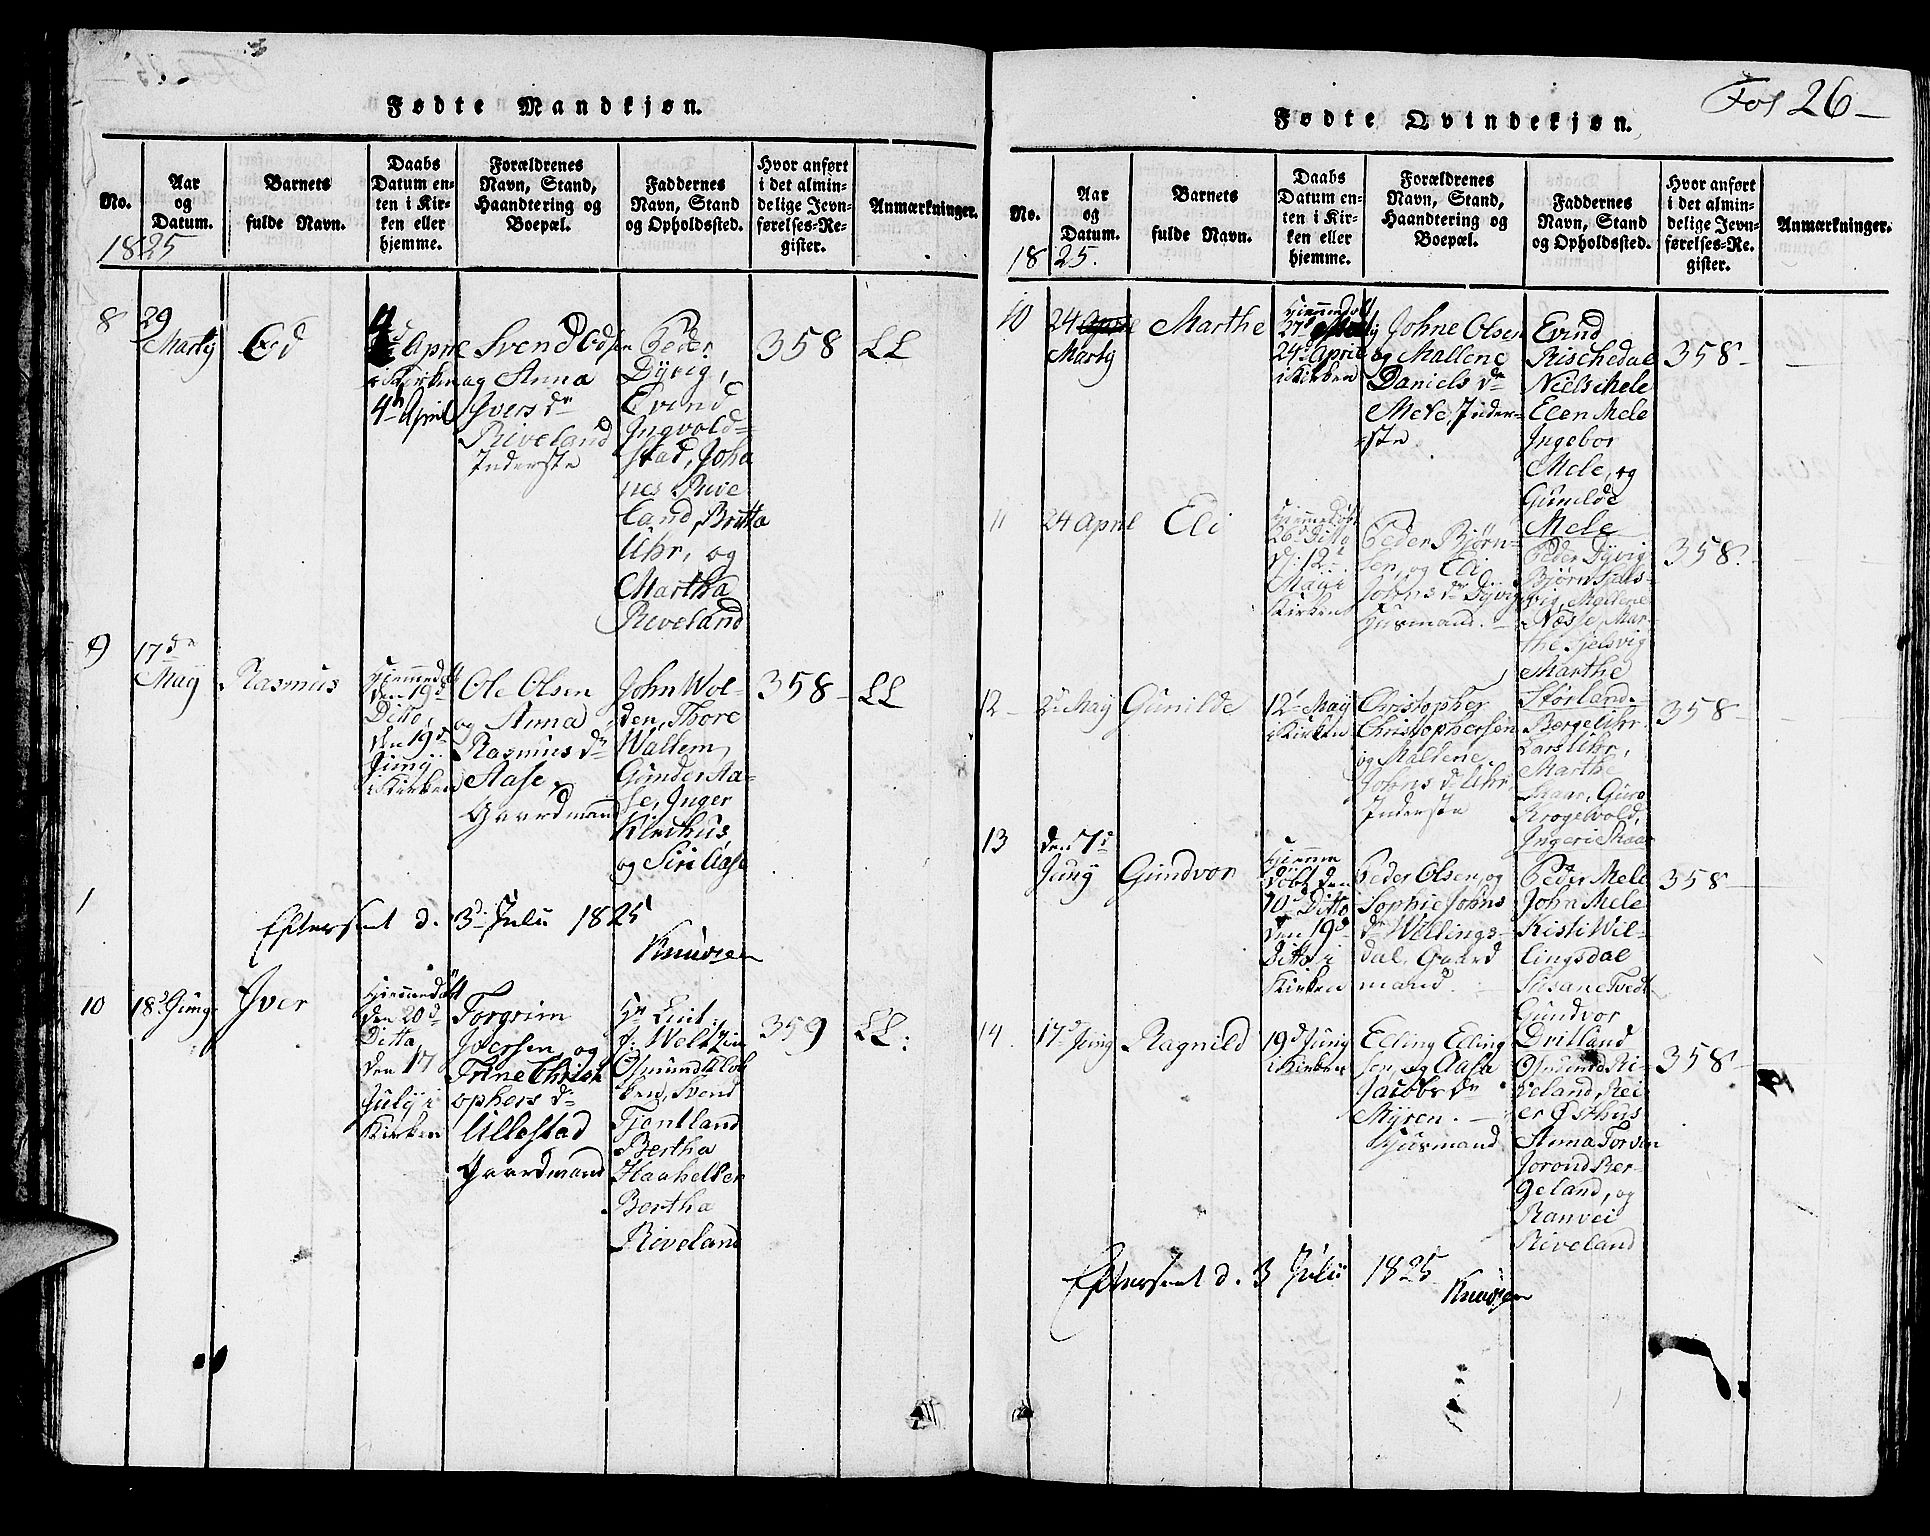 Fødte Mandkjøn.
No.
Aar
og
Datum.
Barnets
fulde Navn.
Daabs
Datum en-
ten i Kir-
ken eller
hjemme.
Forældrenes
Navn, Stand,
Haandtering og
Boepæl.
Faddernes
Navn, Stand
og Opholdssted.
Hvor anført
i det almin-
delige Jevn-
førelses-Re-
gister.
Anmærkninger.
1825
8
29
Marty
Od
d Aprl
i Kirken
4de April
Svend Odsen
og Anna
Ivers dr
Riveland
Inderste
Peder
Dyvig,
Evend
Ingvold-
stad, Joha
nes Rive
land, Britta
Uhr, og
Martha
Riveland
358
LL
9
17de
May
Rasmus
Hjemmedøbt
den 19d
Ditto,
den 19d
Juny
i Kirken
Ole Olsen
og Anna
Rasmus dr
Aase,
Gaardmand
John Wol-
den, Thore
Wallem
Gunder Aa-
se, Inger
Kirchus
og Siri Aase
358 -
LL
Efterseet d. 3d Julii 1825
Knudsen
10
18d Juny
Iver
Hjemmedøbt
den 20d
Ditto
den 17
July i
Kirken
Torgrim
Iversen, og
Trine Christ
ophers dr
Ullestad
Gaardmand
Hr Luit:
J: Weltzin
Osmund Klok
ken, Svend
Tjentland
Bertha
Haaheller
Bertha
Riveland
359
LL:
Fol 26 -
Fødte Qvindekjøn.
No.
Aar
og
Datum.
Barnets
fulde Navn.
Daabs
Datum en-
ten i Kir-
ken eller
hjemme.
Forældrenes
Navn, Stand,
Haandtering og
Boepæl.
Faddernes
Navn, Stand
og Opholdssted.
Hvor anført
i det almin-
delige Jevn-
førelses-Re-
gister.
Anmærkninger.
1825.
10
24 Aprl
Marty
Marthe
Hjemmedøbt
27d Marty
24d April
i Kirken
Johne Olsen
og Mallene
Daniels dr
Mele, Inder-
ste
Evind
Rischedal
Niels Mele
Elen Mele
Ingebor
Mele, og
Gunilde
Mele
358 -
11
24 Aprl
Eli
Hjemmedøbt
26d Ditto
d. 12d
May i
Kirken
Peder Bjørn-
sen, og Eli
Johns dr Dyvig
Husmand. -
Peder Dyvig
Bjørn Hjels-
vig, Mallene
Næsse, Mar-
the Hjelsvig
Marthe
Størland -
358.
12 -
2d May
Gunilde
12d May
i Kirken
Christopher
Christophersen
og Maldene
Johns dr Uhr
Inderste
Berge Uhr
Lars Uhr,
Marthe
Skaar, Guro
Krogevold,
Ingeri Skaar
358 -
13
den 7d
Juny
Gundvor
Hjemme
døbt den
10d Ditto
den 19d
Ditto i
Kirken
Peder Olsen, og
Sophie Johns
dr Wellings-
dal, Gaard
mand.
Peder Mele
John Mele
Kisti Wel-
lingsdal
Susane Tvedt
Gundvor
Dritland
358 -
14.
17d Juny
Ragnild
19d Juny
i Kirken
Elling Elling
sen, og Aasa
Jacobs dr
Myren. -
Husmand
Osmund Ri-
veland, Rei
er Østhus
Anna Torsen
Jorond Ber-
geland, og
Ranvei
Riveland
358 -
Efterseet d. 3 Julii 1825
Knudsen